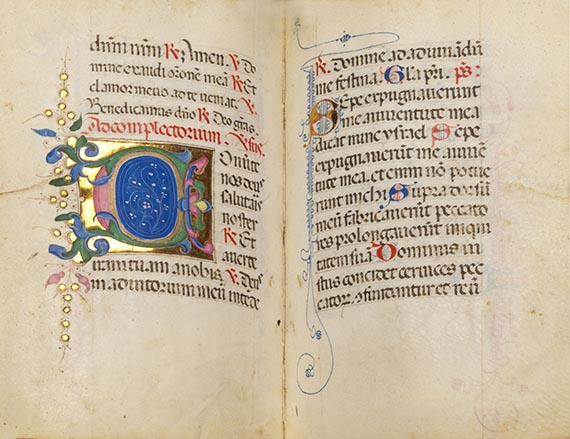 dnm nrm ℟ Amen. ℣ Do
mine exaudi orōne meā ℟ Et
clamor meus ad te veniat. ℣
Benedicamus dño ℟ Deo grās.
Ad complectorium. ℣sus.
Onūte
nos deus
salutaris
noster
℟ Et
averte
iram tuam a nobis. ℣ Deus
in adiutorium meū intēde
℟ Domine ad adiuuādū
me festina. Gl̄a pr̄i. ps̄:
Sepe expugnauerunt
me a iuuentute mea
dicat nunc ysrael Sepe
expugnauerunt me a iuuē
tute mea. et enim non potue
runt michi Supra dorsū
meū fabricauerūt peccato
res prolongauerūt iniqui
tatem suā Dominus iu
stus concidet ceruices pec
cator. 9fundantur et reu